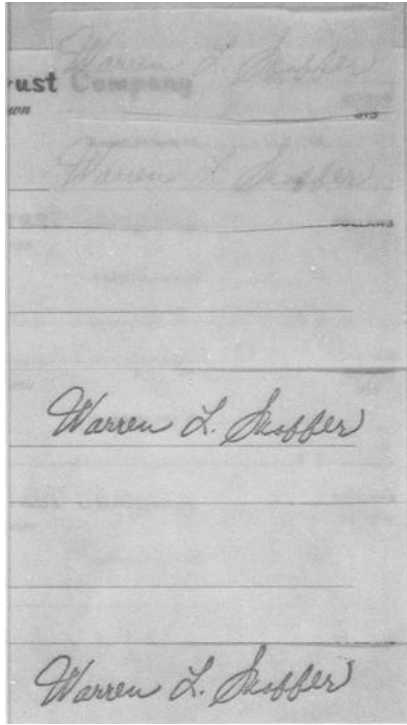 Warren L Shaffer
rust Company
wn
Warren L Shaffer
DOLLARS
Warren L. Shaffer
Warren L. Shaffer